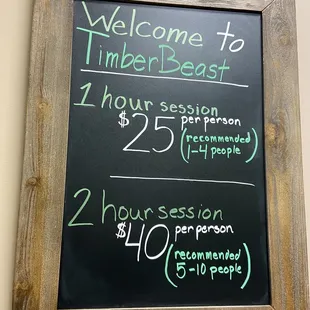 Welcome to
TimberBeast
1 hour session
$25 per person
(recommended
1-4 people)
2 hour session
$40 per person
(recommended
5-10 people)